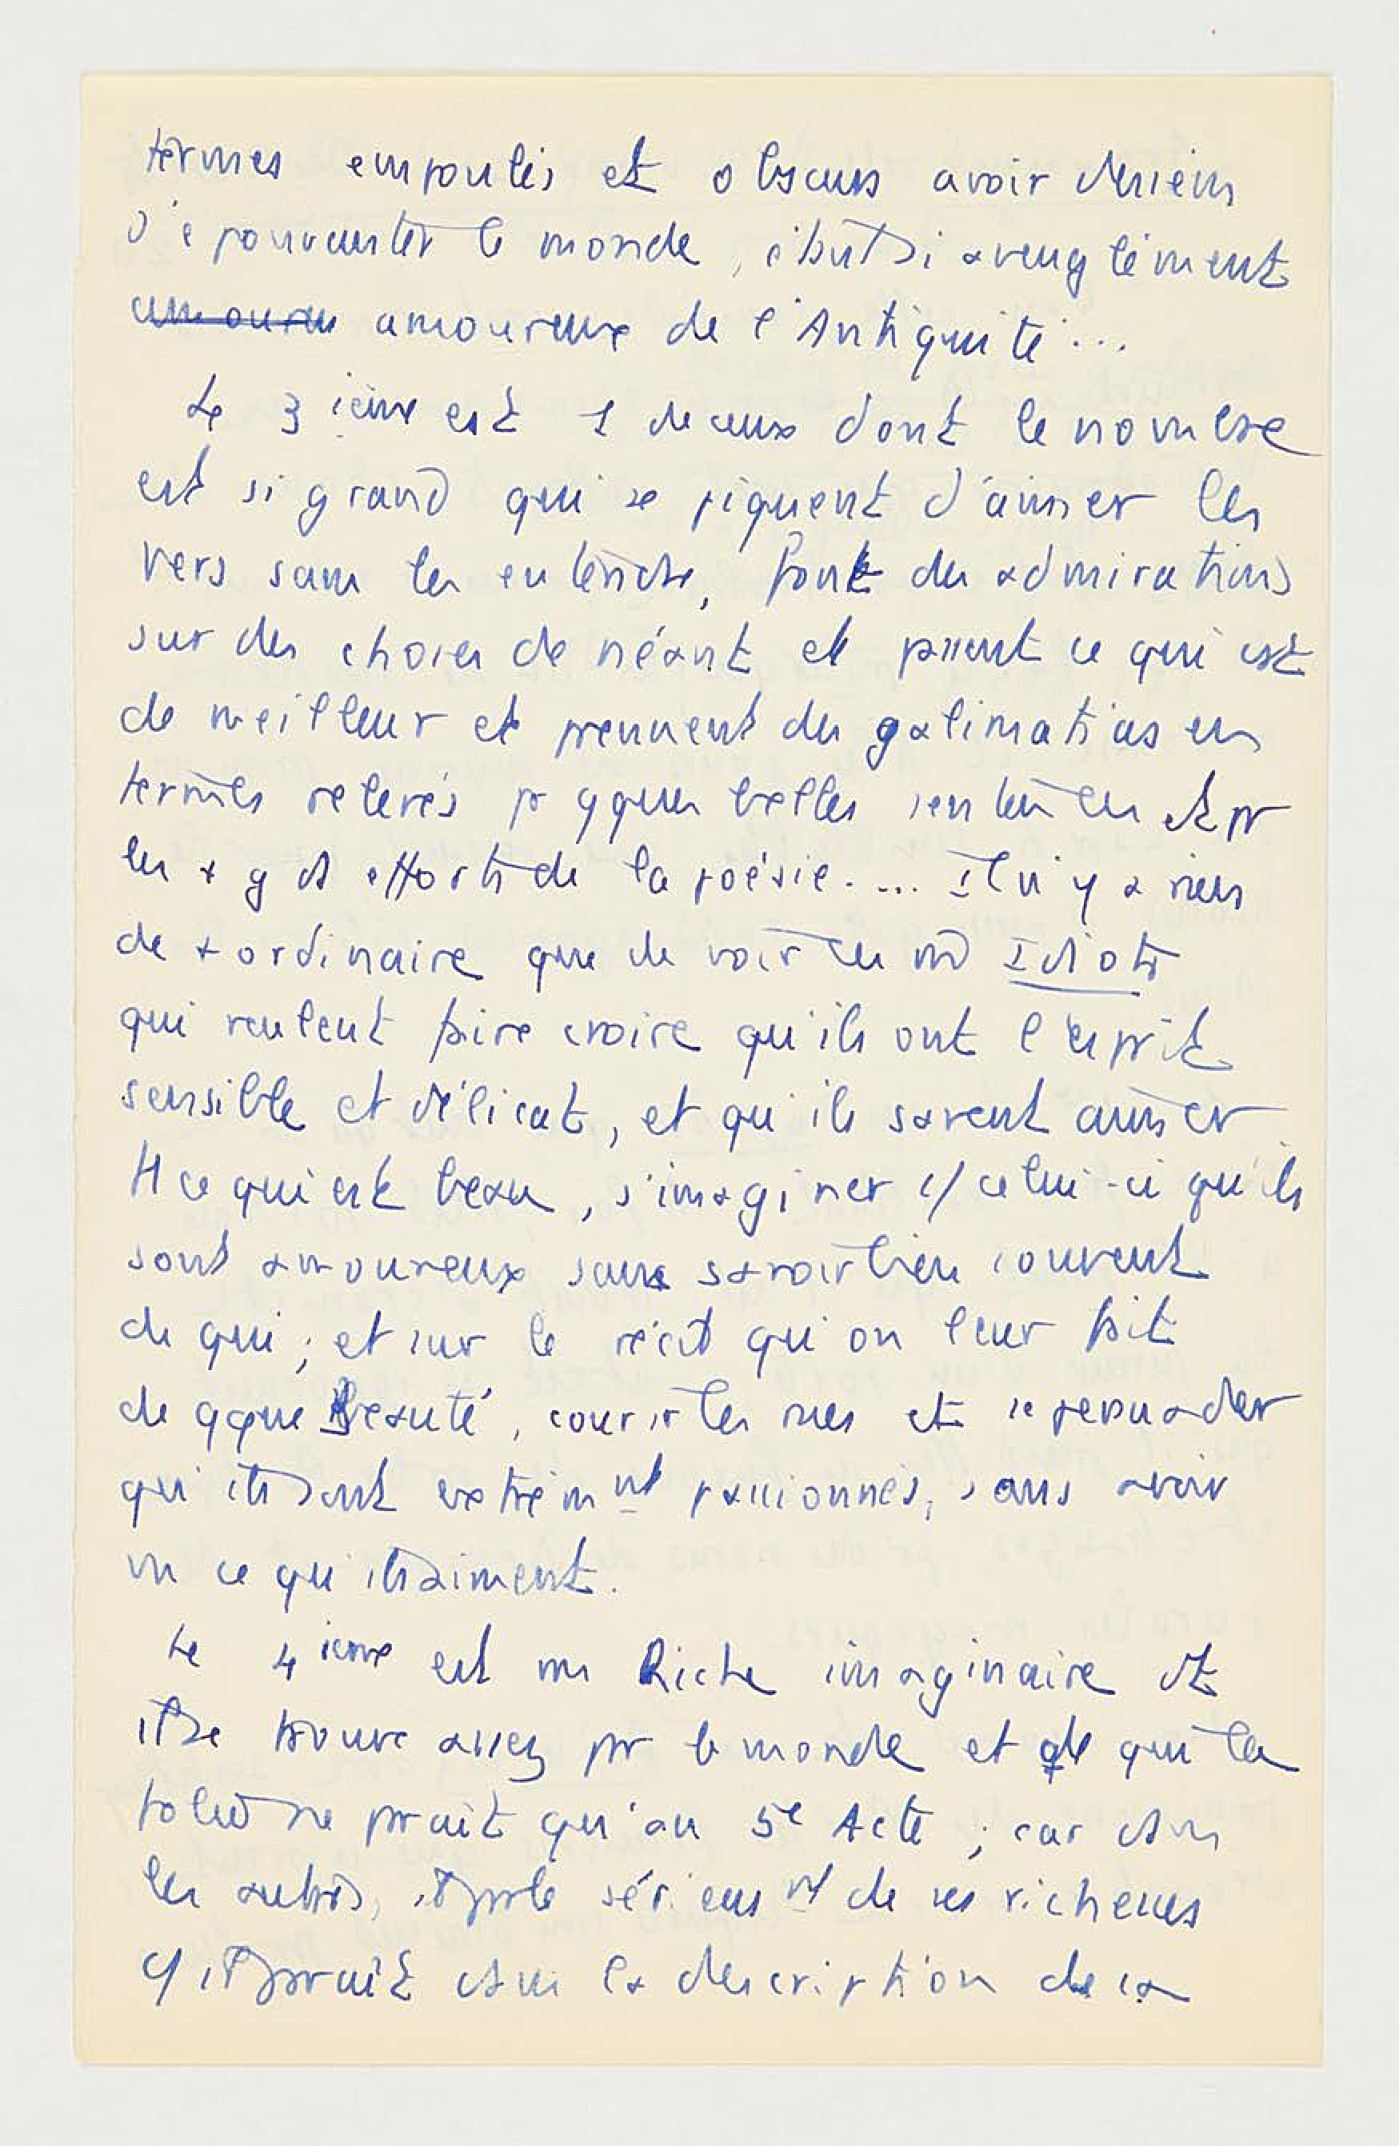 termes empoulés et obscurs avoir dessein
d'epouvanter le monde, étant si aveuglément
amoureux de l'Antiquité...
Le 3 ième est 1 de ceux dont le nombre
est si grand qui se piquent d'aimer les
vers sans les entendre, font des admirations
sur des choses de néant et passent ce qui est
de meilleur et prennent du galimatias en
termes relevés pr qques belles sentences et pr
les + gds efforts de la poésie.... Il n'y a rien
de + ordinaire que de voir de ces Idiots
qui veulent faire croire qu'ils ont l'esprit
sensible et délicat, et qu'ils savent aimer
tt ce qui est beau, s'imaginer c/ celui-ci qu'ils
sont amoureux sans savoir bien souvent
de qui ; et sur le récit qu'on leur fait
de qque Beauté, courir les rues et se persuader
qu'ils sont extrêmnt passionnés, sans avoir
vu ce qu'ils aiment.
Le 4 ième est un Riche imaginaire et
il se trouve assez pr le monde et de qui la
folie ne parait qu'au 5e Acte ; car ds
les autres, il parle sérieusnt de ses richesses
c/ il parait ds la description de sa